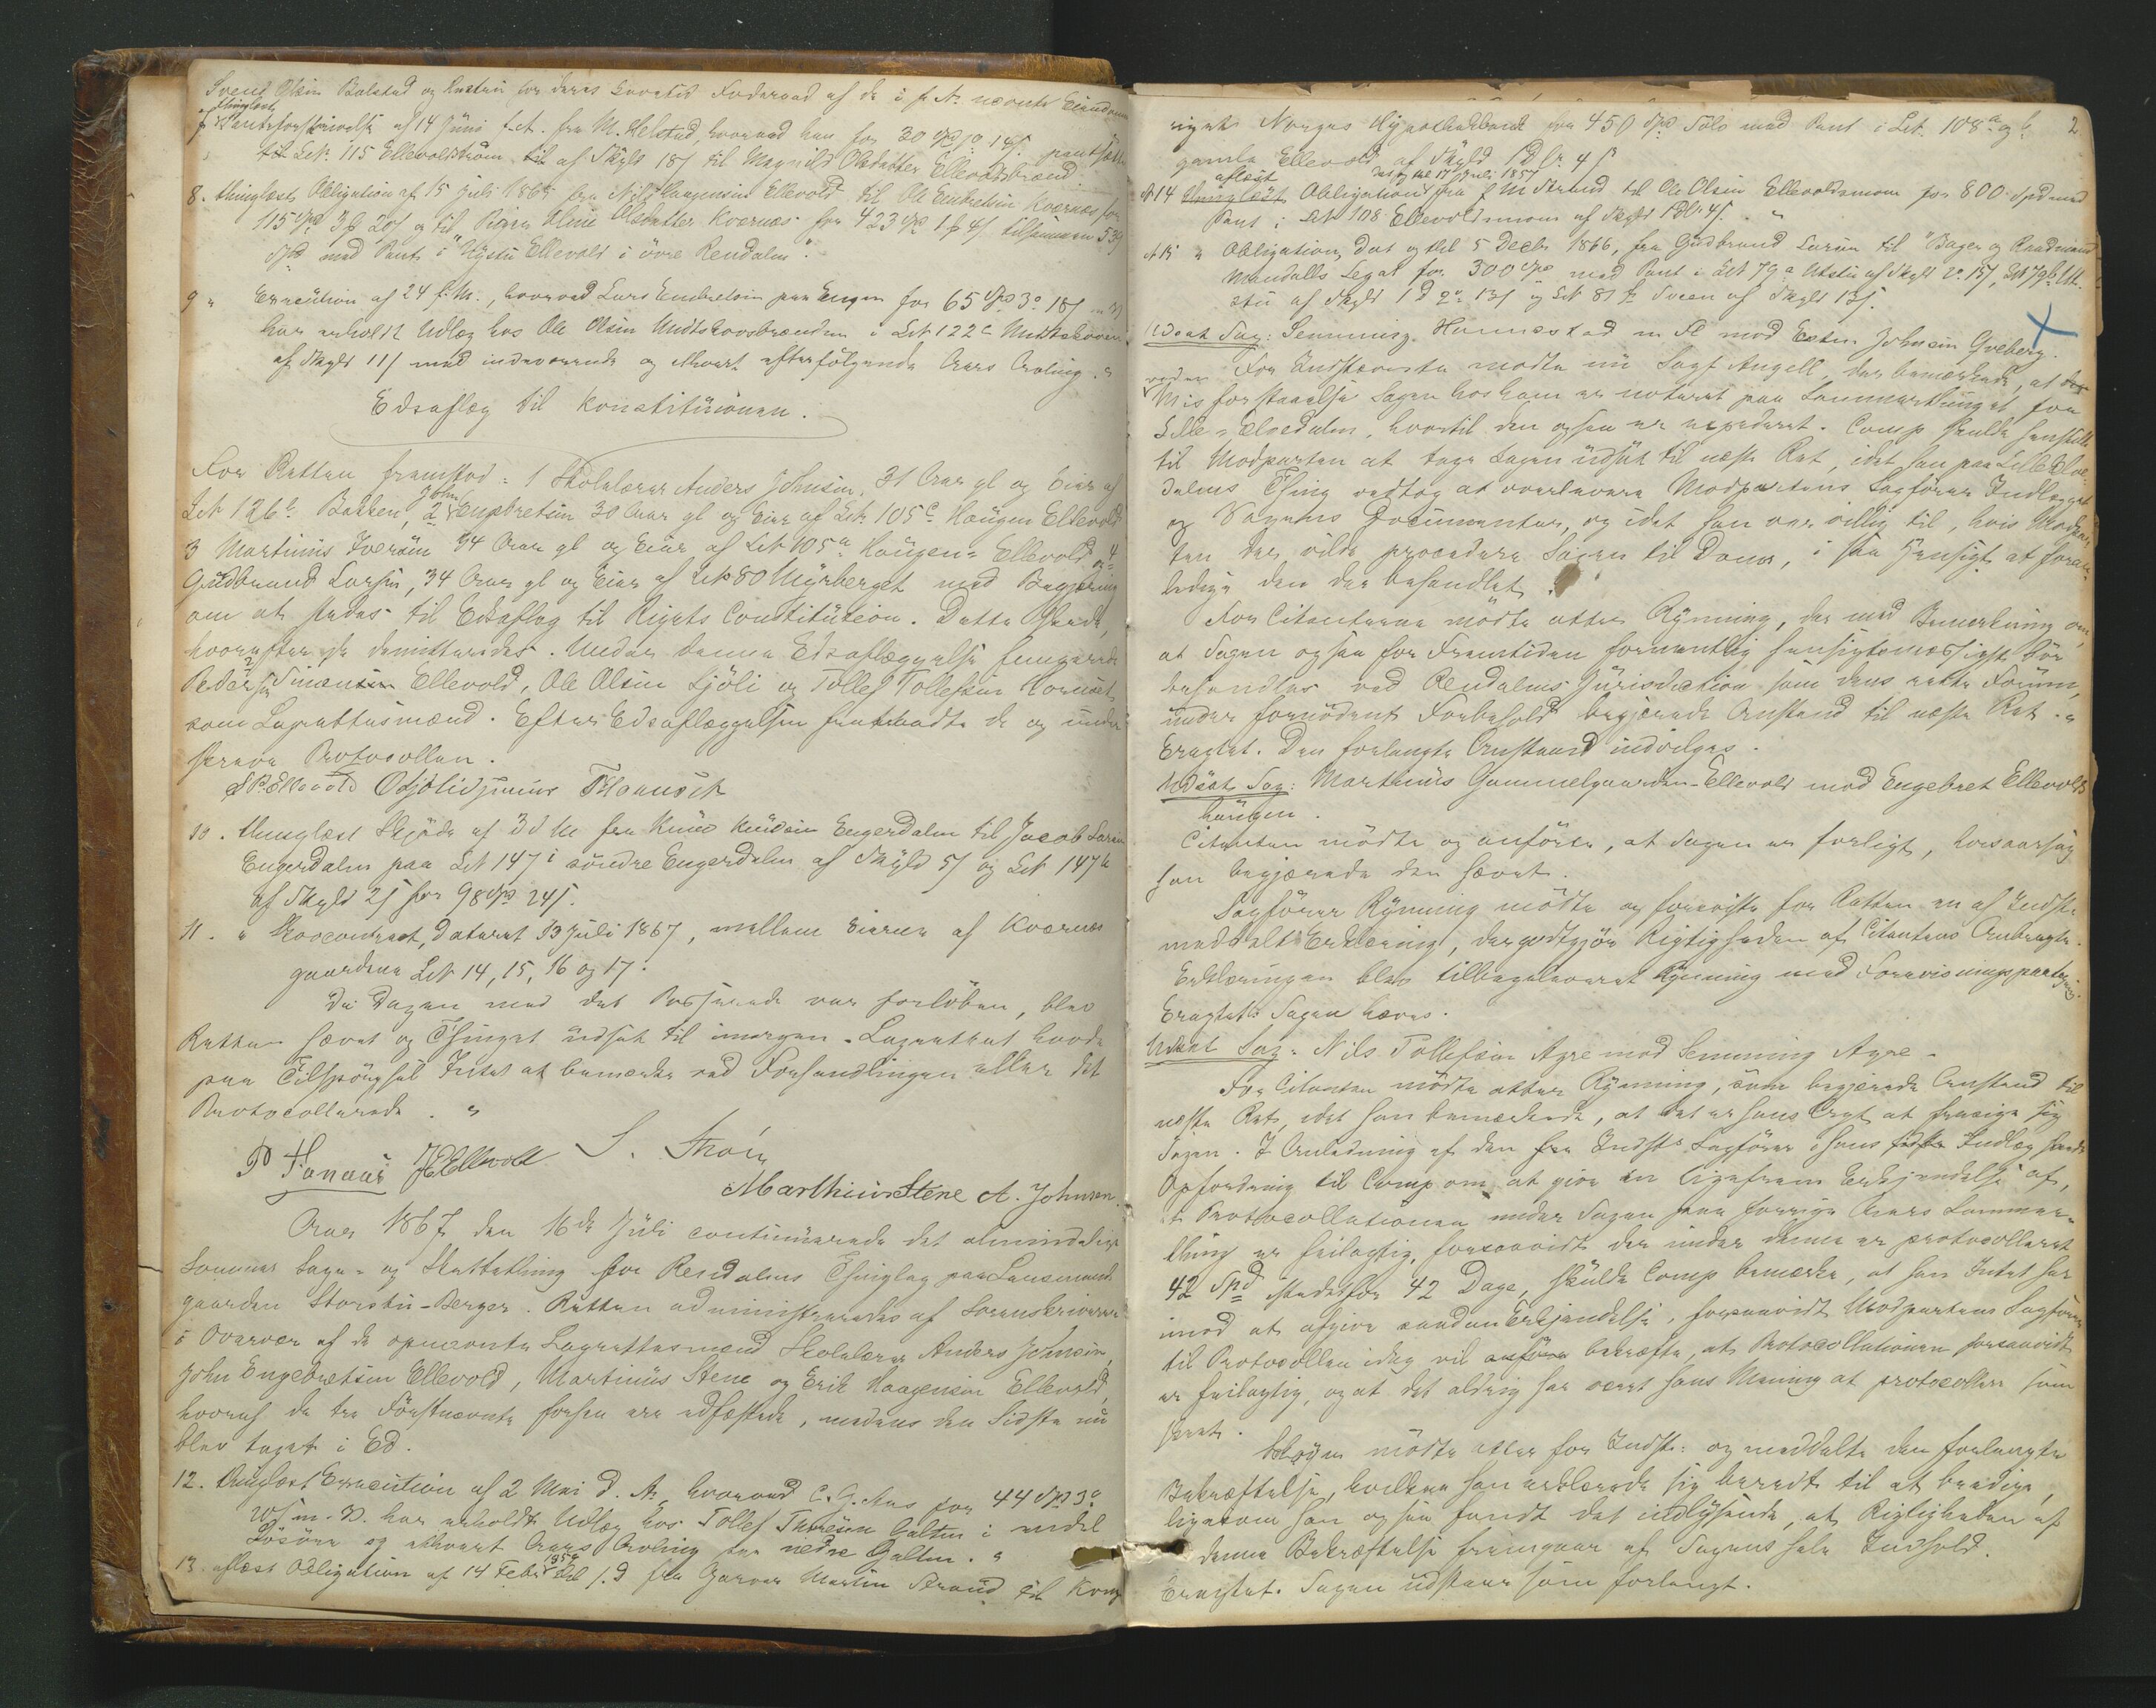 Svend Olsen Balstad og Kustru for deres Levetid Foderaad af de i f. Nr. nævnte Eiendomme
7 thinglæst Panteforskrivelse af 14 Juni d.A. fra M. Helstad, hvorved han for 30 Spd 1 ort 14 s. pantsætter
Løb N. 115 Ellevoldstrøm af Skyld 18 s til Magnild Olsdatter Ellevoldsbrænd
8. thinglæst Obligation af 15 Juli 1867 fra Nils Haagensen Ellevold til Ole Embretsen Kværnæs for
115 Spd 3 ƒ 20 s og til Olsdatter Kværnæs for 423 Spd 1 ƒ 4 s tilsammen 539
Spd med Pant i "Nystu Ellevold i øvre Rendalen".
9 " Execution af 24 f. M., hvorved Lars Embretsen paa Engen for 65 Spd 3 o 18 s m. D.
har erholdt Udlæg hos Ole Olsen Midtskovsbrænden i Løb N 122 c Midtskoven
af Skyld 11 s med indeværende og ethvert efterfølgende Aars Avling. "
Edsaflæg til Konstitutionen.
For Retten fremstod: 1 Skolelærer Anders Johnsen, 31 Aar gl og Eier af
Løb N 126 b Bakken, 2 John Engebretsen 30 Aar gl og Eier af Løb N. 105 c Haugen Ellevold
3 Martinus Iversen 34 Aar gl og Eier af Løb N 105 a Haugen-Ellevold og 4
Gudbrand Larsen, 34 Aar gl og Eier af Løb N 80 Myrberget med Begjæring
om at stedes til Edsaflæg til Rigets Constitution. Dette skede,
hvorefter de demitteredes. Under denne Edsaflæggelse fungerede
Peder Simensen Ellevold, Ole Olsen Sjøli og Tollef Tollefsen Hornset
som Lagrettesmænd. Efter Edsaflæggelsen fratraadte de og under
skrev Protocollen.
S P. Ellevold O Sjøli T Hornset
10. thinglæst Skjøde af 3 d M fra Knud Knudsen Engerdalen til Jacob Larsen
Engerdalen paa Løb N 147 i søndre Engerdalen af Skyld 5 s og Løb N 147 b
af Skyld 2 s for 98 Spd 24 s.
11. " Skovcontract, dateret 13 Juli 1867, mellem Eierne af Kværnæs
gaardene Løb N 14, 15, 16 og 17.
Da Dagen med det Passerede var forløben, blev
Retten hævet og Thinget udsat til imorgen. Lagrettet havde
paa Tilspørgsel Intet at bemærke ved Forhandlingen eller det
Protocollerede. "
P Hanaas J E Ellevold S. Thoen
Marthinus Stene A. Johnsen.
Aar 1867 den 16de Juli continuerede det almindelige
Sommer Sage- og Skattething for Rendalens Thinglag paa Lensmands
gaarden Storstu-Berger. Retten administreredes af Sorenskriveren
i Overvær af de opnævnte Lagrettesmænd Skolelærer Anders Johnsen,
John Engebretsen Ellevold, Martinus Stene og Erik Haagensen Ellevold,
hvoraf de tre Førstnævnte forhen ere edfæstede, medens den Sidste nu
blev taget i Ed.
12. thinglæst Execution af 2 Mai d. A., hvorved C. G. Aas for 44 Spd 3 o
20 s m. D. har erholdt Udlæg hos Tollef Thoresen Galten i endel
Løsøre og ethvert Aars Avling paa nedre Galten. "
13. aflæst Obligation af 14 Febr 1859 fra Garver Martin Strand til Kong
2
riget Norges Hypothekbank for 450 Spd Sølv med Pant i Løb N. 108 a og b
gamle Ellevold af Skyld 1 d 4 s
N 14 thinglæst aflæst Obligation dat og thl 17 Juli 1857 fra M Strand til Ole Olsen Ellevoldsmoen for 800 Spd med
Pant i Løb N 108 Ellevoldsmoen af Skyld 1 d 4 s. "
N 15 " Obligation, dat og thl 5 Decbr 1866, fra Gudbrand Larsen til "Bager og Raadmand
Mandalls Legat for 300 Spd med Pant i Løb N 79 a Utstu af Skyld 2 o 15 s, Løb N 79 b Ut-
stu af Skyld 1 d 2 o 13 s og Løb N 81 b Sveen af Skyld 13 s.
Udsat Sag: Semming Hannestad m Fl mod Esten Johnsen Gveberg.
For Indstevnte mødte nu Sagf Angell, der bemærkede, at ved en
Misforstaaelse Sagen hos ham er noteret paa Sommerthinget for
Lille-Elvedalen, hvortil den ogsaa er expederet. Comp skulde henstille
til Modparten at tage Sagen udsat til næste Ret, idet han paa Lille Elve-
dalens Thing vedtog at overlevere Modpartens Sagfører Indlægget
og Sagens Documenter, og idet han var villig til, hvis Modpar
ten der vilde procedere Sagen til Doms, i saa Henseigt at foran-
ledige den der behandlet.
For Citanterne mødte atter Rynning, der med Bemærkning om,
at Sagen ogsaa for Fremtiden formentlig hensigtsmæssigst bør
behandles ved Rendalens Jurisdiction som dens rette Forum,
under fornødent Forbehold begjærede Anstand til næste Ret. "
Eragtet. Den forlangte Anstand indvilges.
Udsat Sag: Martinus Gammelgaarden-Ellevold mod Engebret Ellevolds
haugen.
Citanten mødte og anførte, at Sagen er forligt, hvorfor
han begjærede den hævet.
Sagfører Rynning mødte og foreviste for Retten en af Indst.
meddelt Erklæring, der godtgjør Rigtigheden af Citantens Anbragte.
Erklæringen blev tilbageleveret Rynning med Forevisningspaategning.
Eragtet: Sagen hæves.
Udsat Sag: Nils Tollefsen Agre mod Semming Agre.
For Citanten mødte atter Rynning, som begjærede Anstand til
næste Ret, idet han bemærkede, at det er hans Agt at frasige sig
Sagen. I Anledning af den fra Indst.s Sagfører i hans sidste Indlæg skede
Opfordring til Comp om at give en ligefrem Erkjendelse af,
at Protocollationen under Sagen paa forrige Aars Sommer-
thing er feilagtig, forsaavidt der under denne er protocolleret
42 Spd istedetfor 42 Dage, skulde Comp bemærke, at han Intet har
imod at afgive saadan Erkjendelse, forsaavidt Modpartens Sagfører
til Protocollen idag vil anføre bekræfte, at Protocollationen forsaavidt
er feilagtig, og at det aldrig har været hans Mening at protocollere som
skeet.
mødte atter for Indst. og meddelte den forlangte
Bekræftelse, hvilken han erklærede sig beredt til at beedige,
ligesom han ogsaa fandt det indlysende, at Rigtigheden af
denne Bekræftelse fremgaar af Sagens hele Indhold.
Eragtet. Sagen udstaar som forlangt.